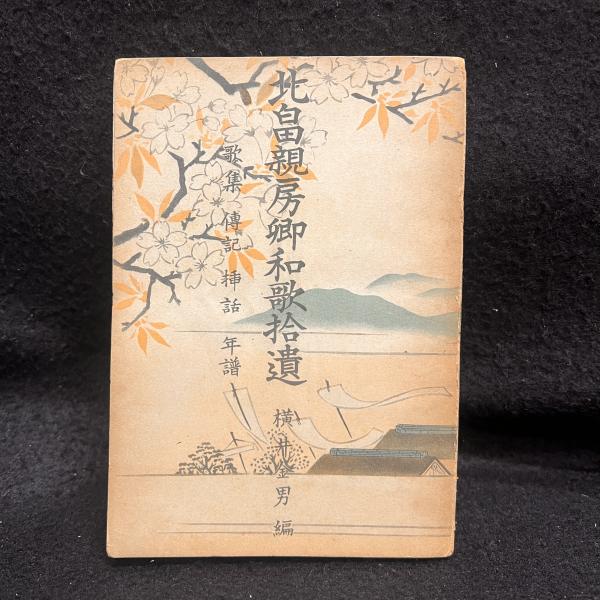 北畠親房卿和歌拾遺
歌集 傳記 挿話 年譜
横井金男編